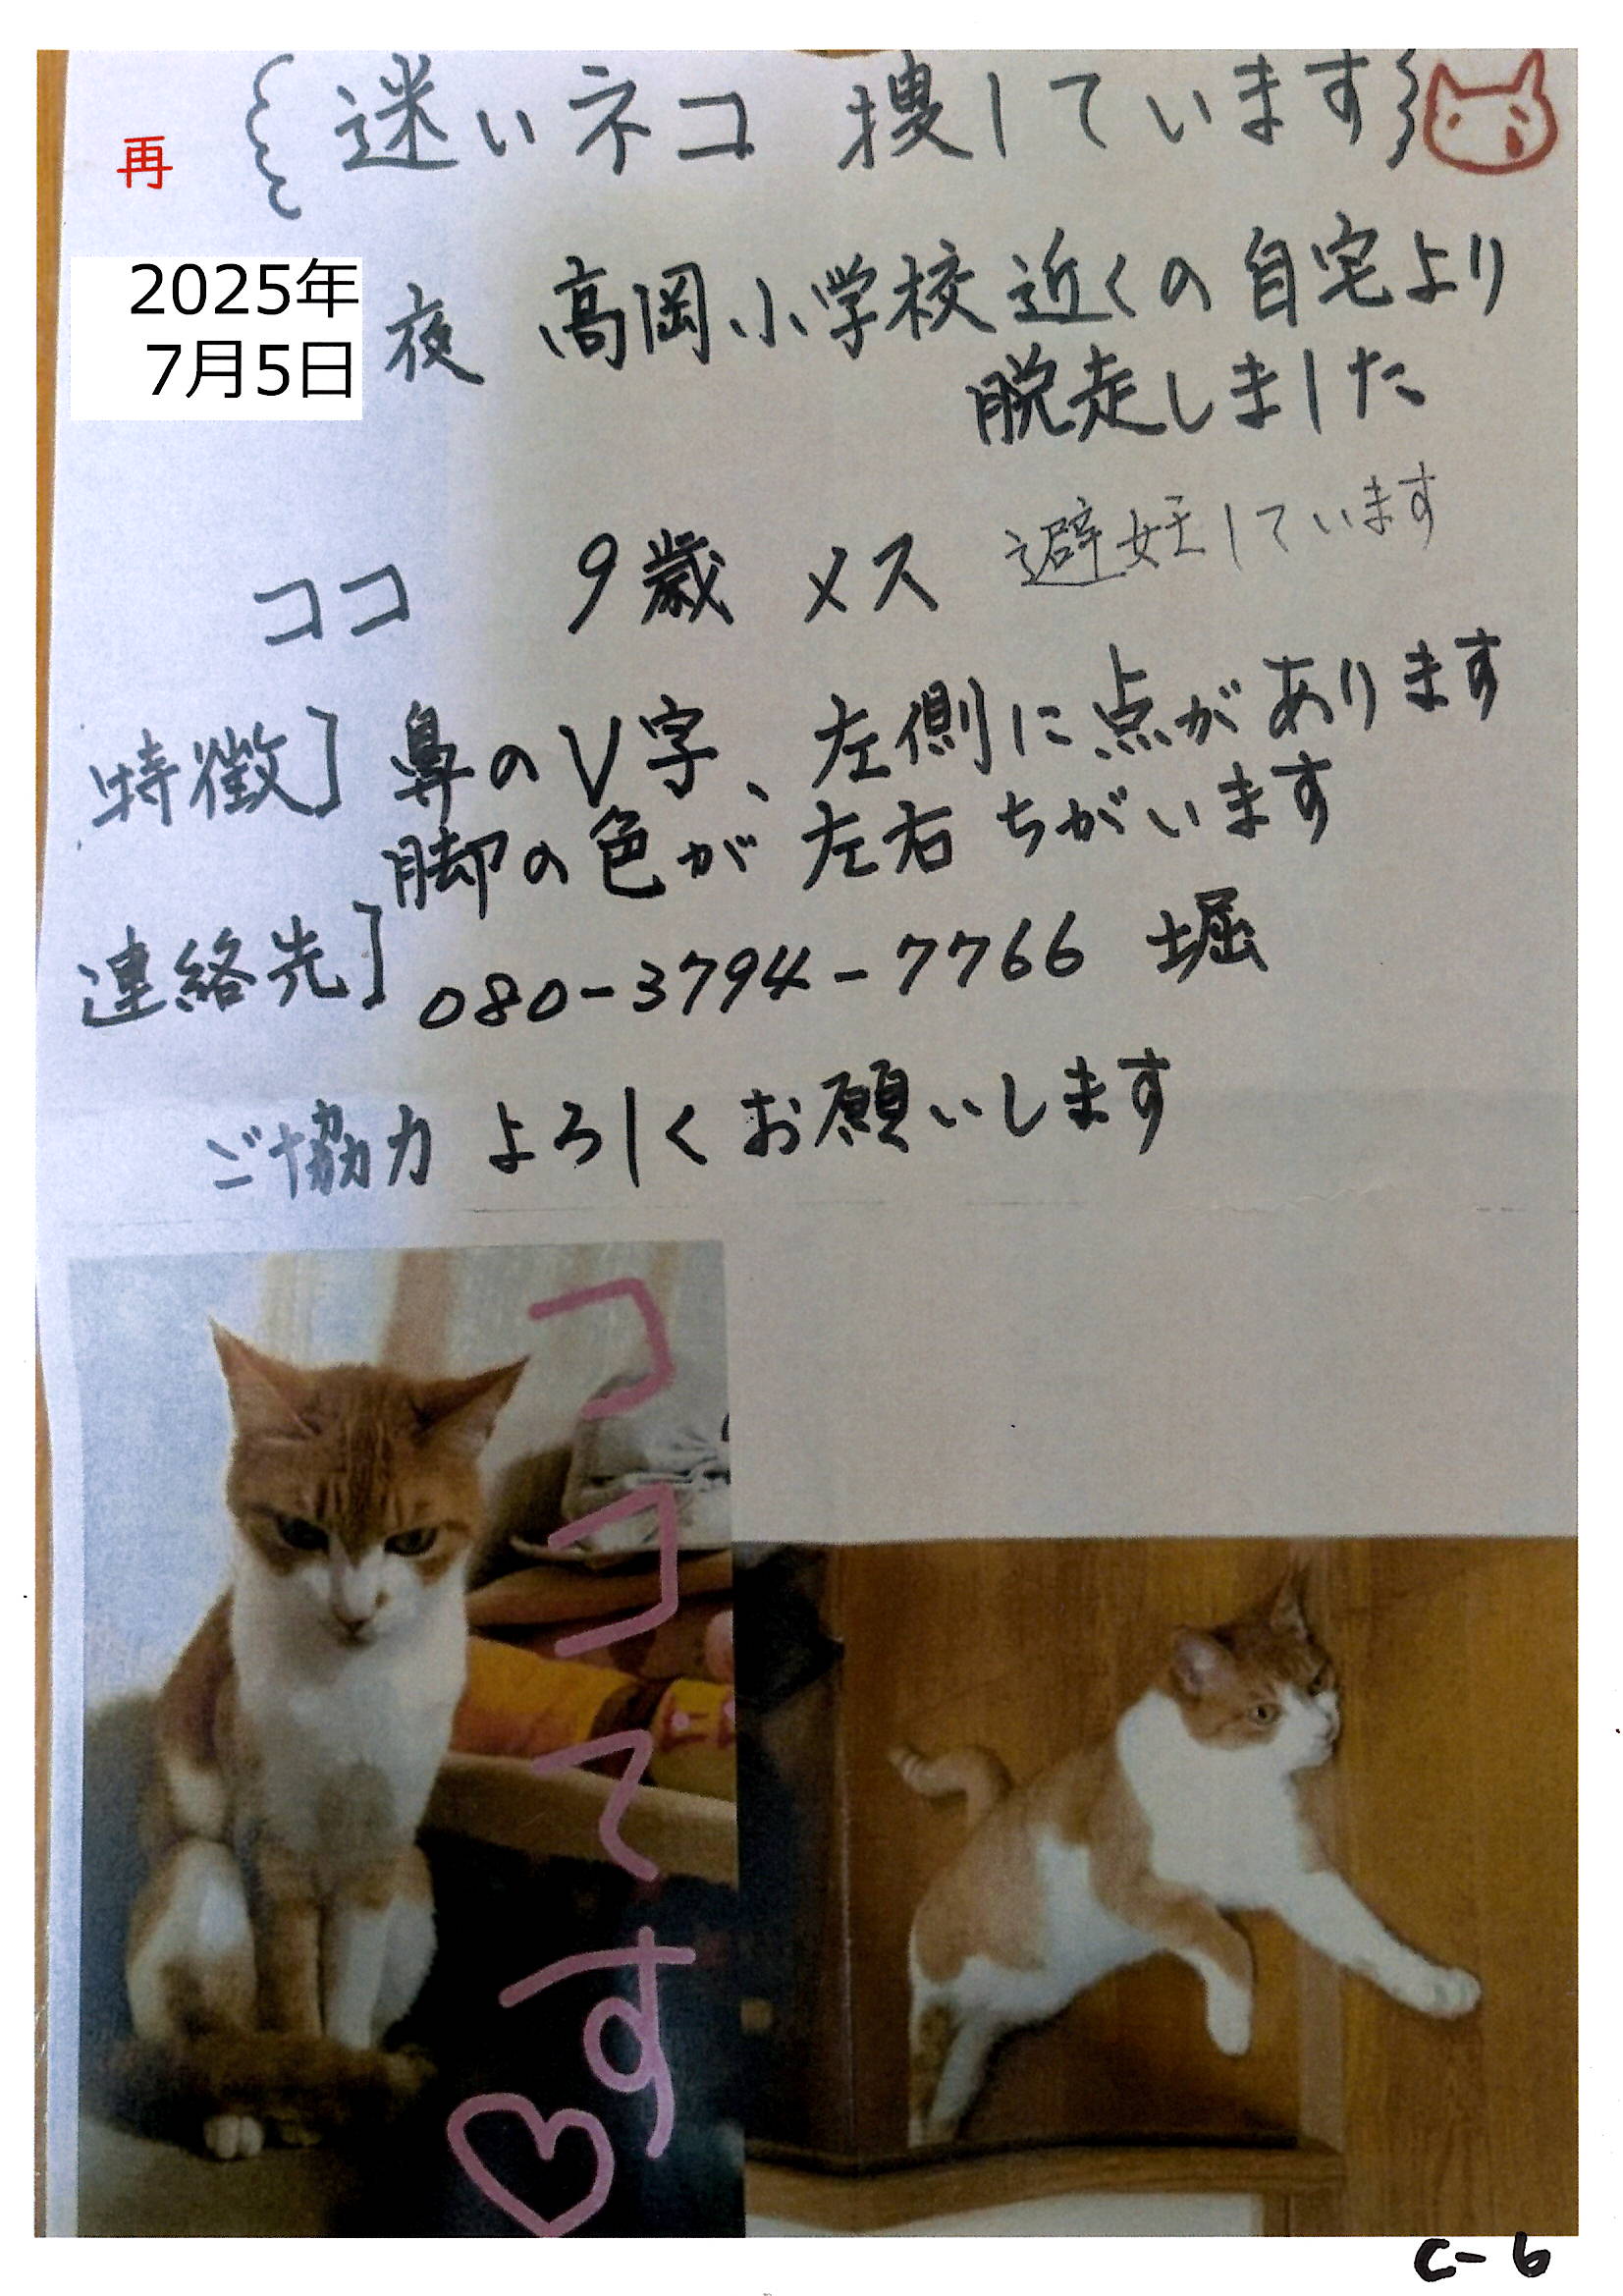 迷いネコ 捜しています
再
2025年
7月5日
夜 高岡小学校近くの自宅より
脱走しました
ココ 9歳 メス 避妊しています
特徴] 鼻のV字、左側に点があります
脚の色が左右ちがいます
連絡先] 080-3794-7766 堀
ご協力よろしくお願いします
ココです
C-6